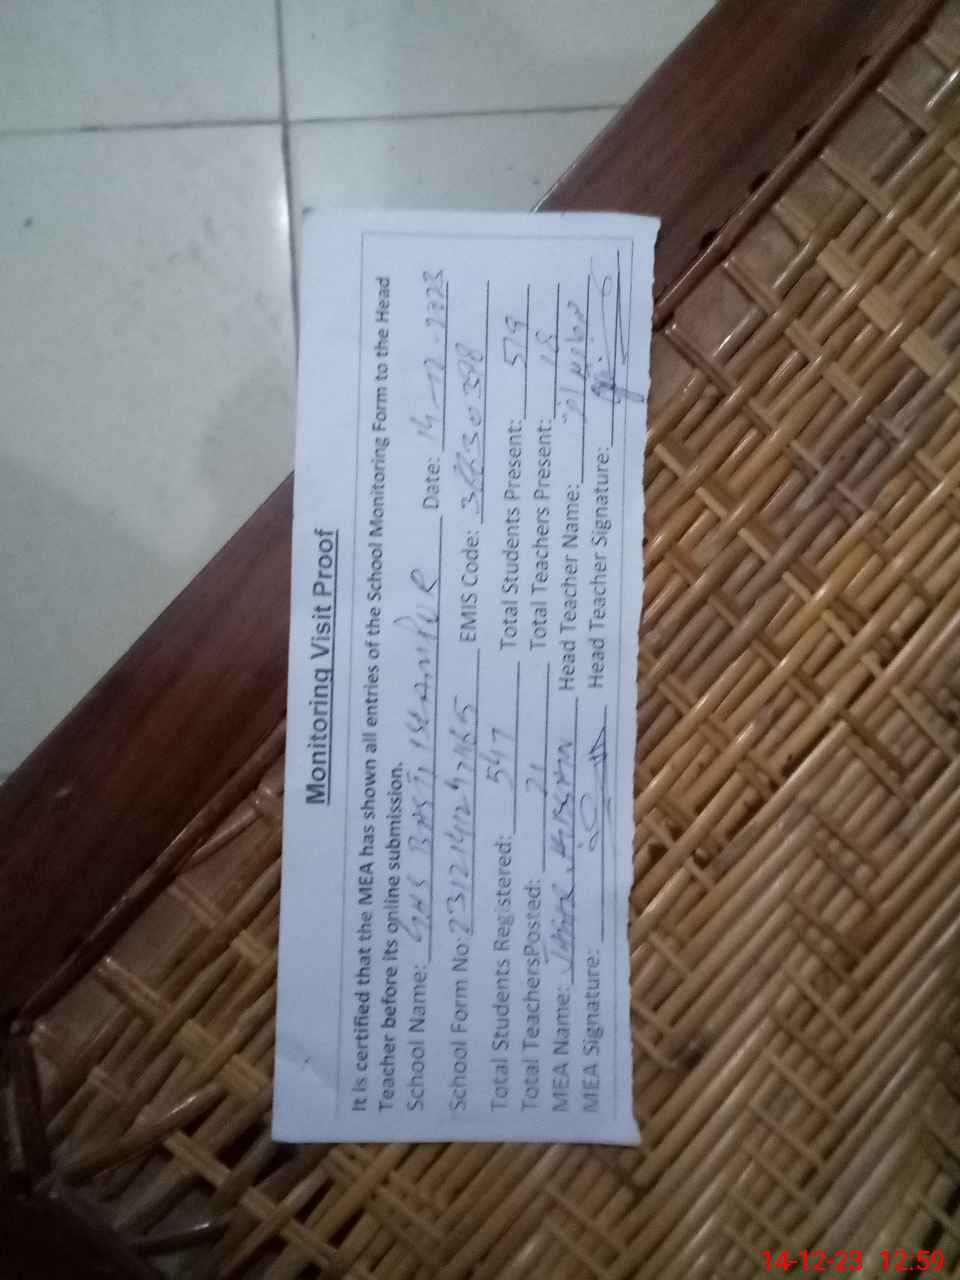 Monitoring Visit Proof
It is certified that the MEA has shown all entries of the School Monitoring Form to the Head
Teacher before its online submission.
School Name: GHS BASTI Date: 14-12-2023
School Form No: EMIS Code:
Total Students Registered: 547 Total Students Present: 519
Total TeachersPosted: 21 Total Teachers Present: 18
MEA Name: Head Teacher Name:
MEA Signature: Head Teacher Signature:
14-12-23 12:59